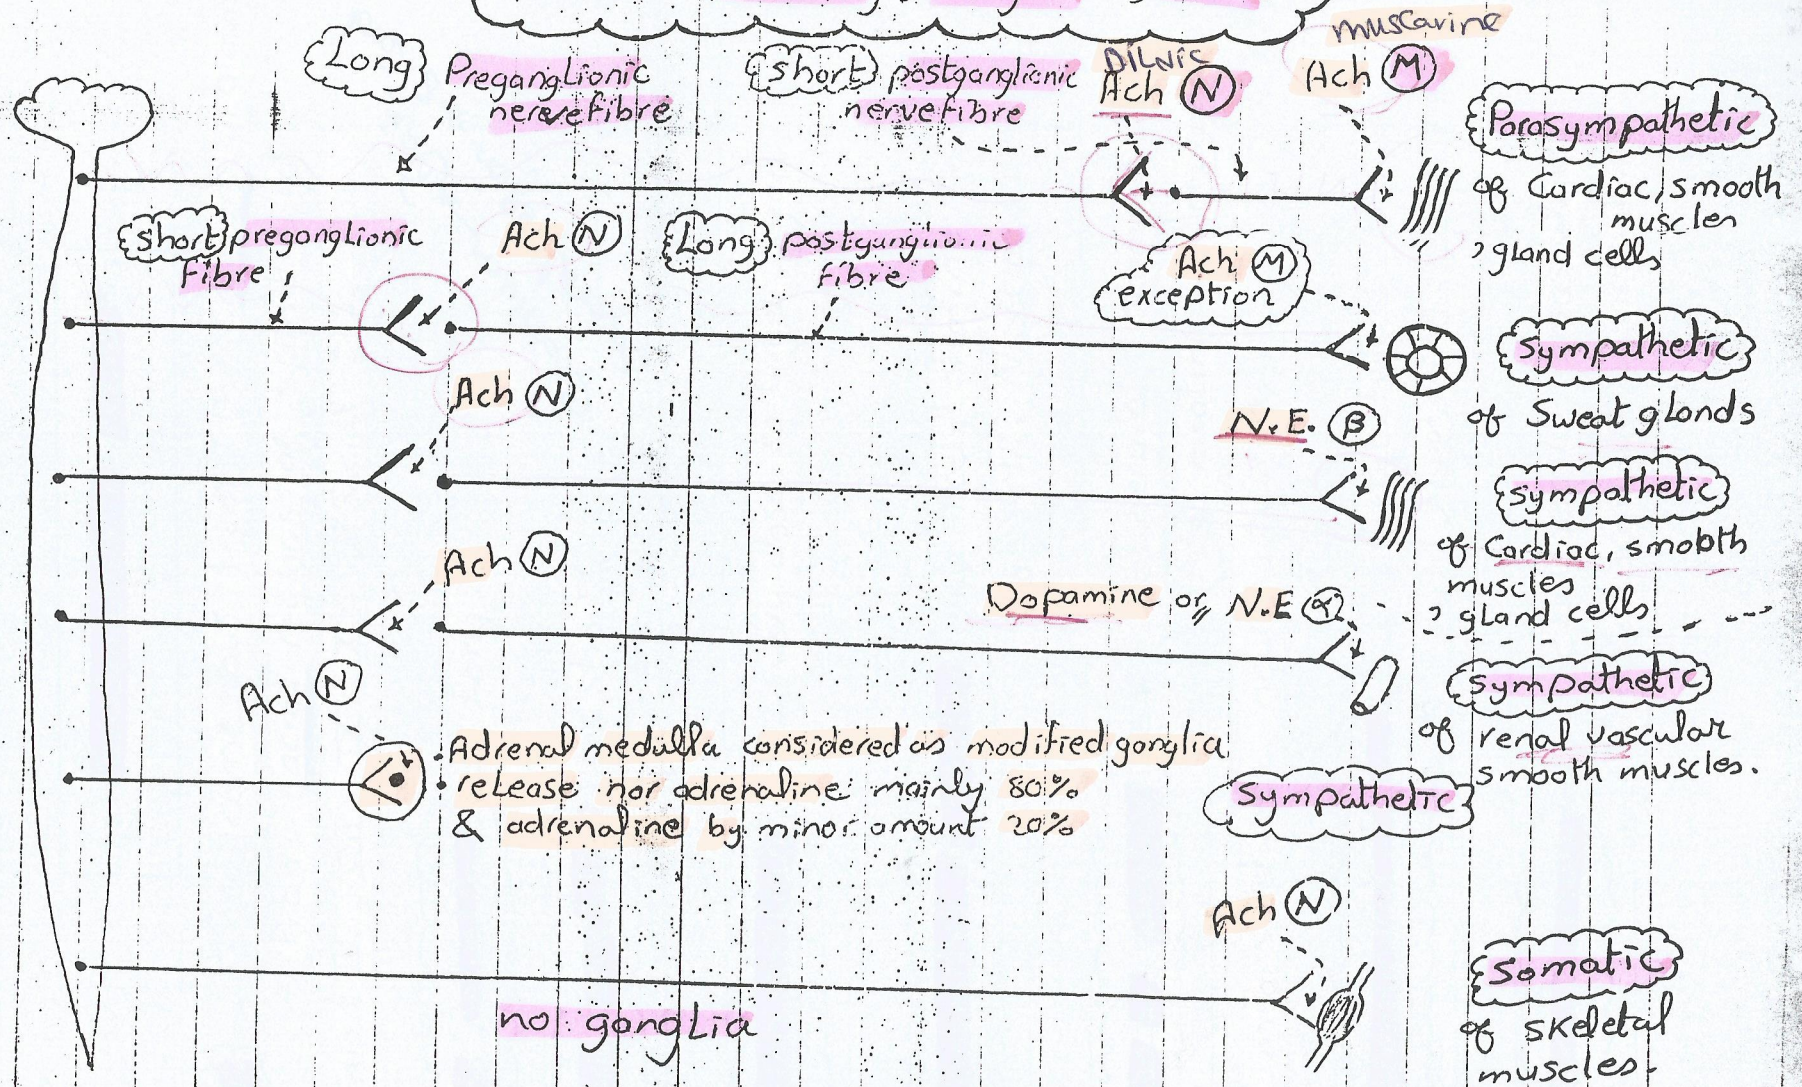 muscarine
Long
Preganglionic
nerve fibre
short
postganglionic
nerve fibre
Ach N
Ach M
Parasympathetic
of Cardiac, smooth
muscles
, gland cells
short preganglionic
fibre
Ach N
Long postganglionic
fibre
Ach M
exception
Sympathetic
of Sweat glands
Ach N
N.E. β
Sympathetic
of Cardiac, smooth
muscles
, gland cells
Ach N
Dopamine or N.E α
Sympathetic
of renal vascular
smooth muscles.
Ach N
• Adrenal medulla considered as modified ganglia
• release nor adrenaline mainly 80%
& adrenaline by minor amount 20%
Sympathetic
Ach N
no ganglia
Somatic
of skeletal
muscles.